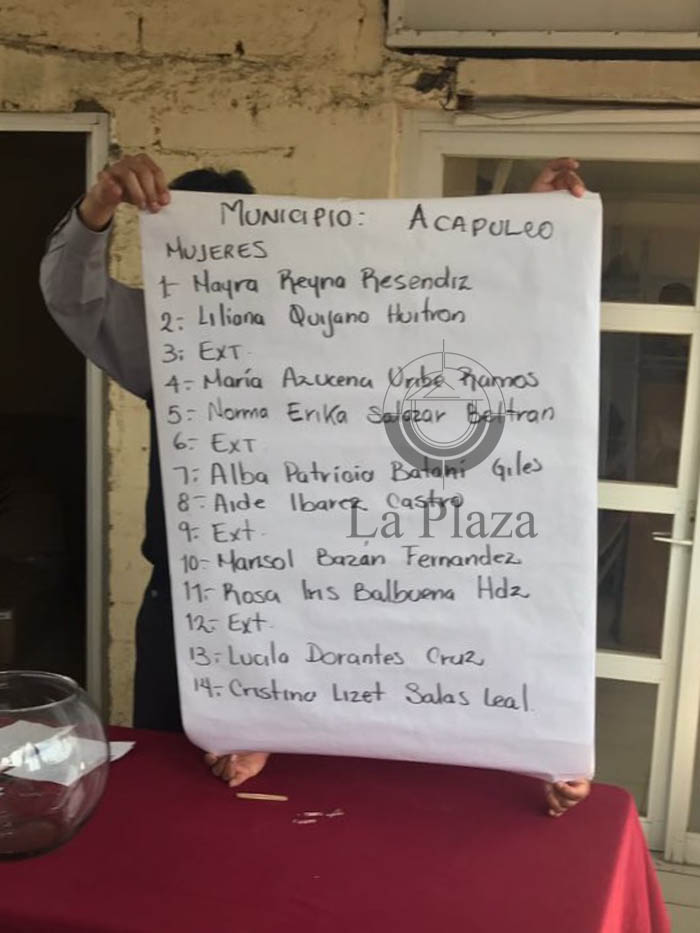 MUNICIPIO: ACAPULCO
MUJERES
1- Mayra Reyna Resendiz
2- Liliana Quijano Huitron
3- EXT.
4- María Azucena Uribe Ramos
5- Norma Erika Salazar Beltran
6- EXT
7- Alba Patricia Batani Giles
8- Aide Ibarez Castro
9- Ext.
10- Marisol Bazán Fernandez
11- Rosa Iris Balbuena Hdz
12- Ext.
13- Lucila Dorantes Cruz
14- Cristina Lizet Salas Leal.
La Plaza